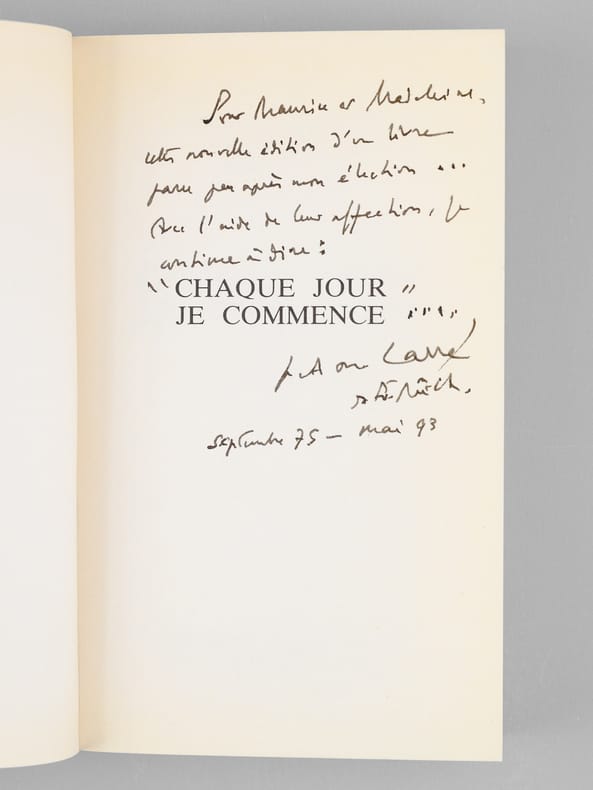 Pour Maurice et Madeleine,
cette nouvelle édition d'un livre
paru peu après mon élection ...
Avec l'aide de leur affection, je
continue à dire :
"CHAQUE JOUR "
JE COMMENCE .....
A-M Carré
septembre 75 - mai 93